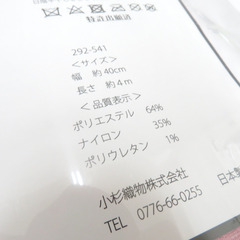 特許出願済
292-541
<サイズ>
幅 約40cm
長さ 約4m
<品質表示>
ポリエステル 64%
ナイロン 35%
ポリウレタン 1%
小杉織物株式会社
TEL 0776-66-0255
日本製